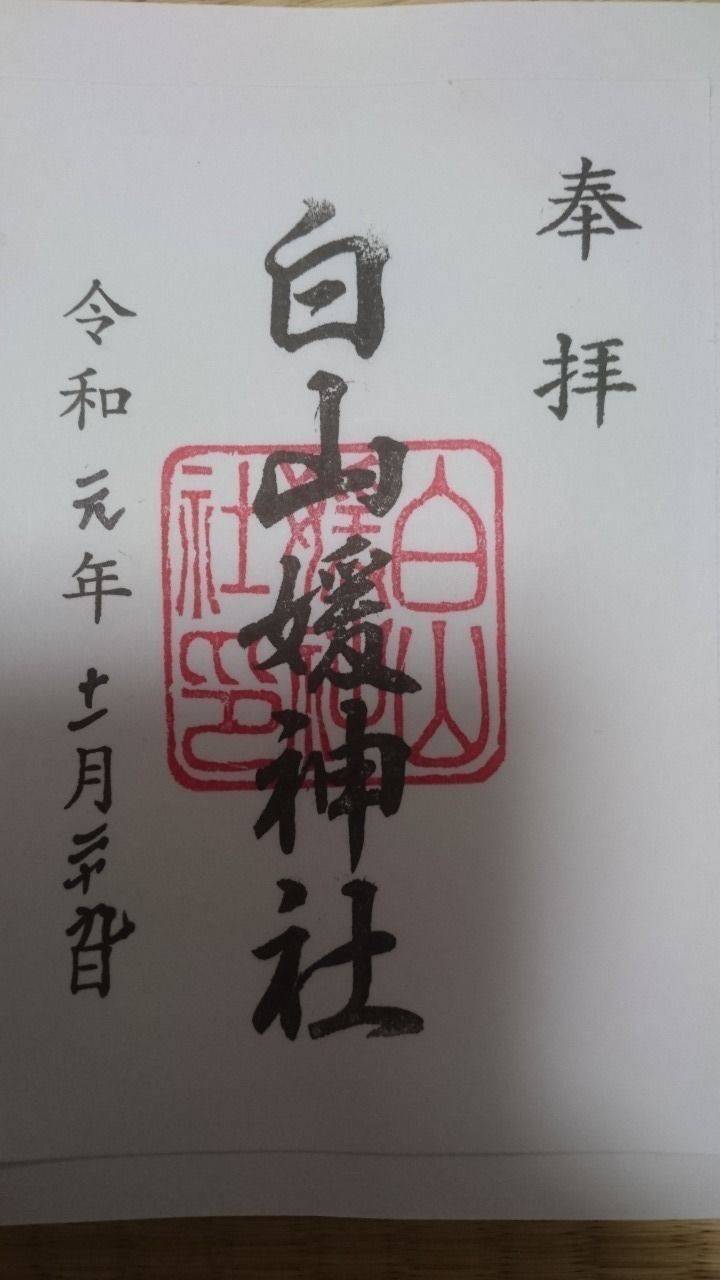 奉拝
白山媛神社
白山
社印
令和元年十一月二十九日